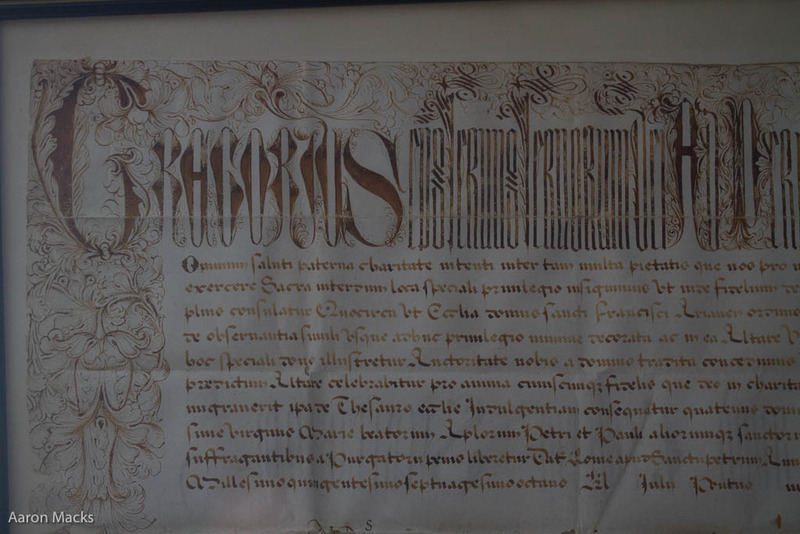 GREGORIUS
Omnium saluti paterna charitate intenti inter tam multa pietatis que nos pro
exercere Sacra interdum loca speciali privilegio insignimus ut inde fidelium
plius consulatur Quocirca Ut Ecclia domus sancti Francisci ordinis
de observantia simili usque adhuc privilegio minime decorata ac in ea Altare
hoc speciali dono illustretur Auctoritate nobis a domino tradita concedimus
predictum Altare celebrabitur pro anima cuiuscunque fidelis que deo in charita
migraverit ipa de Thesauro ecclie Indulgentiam consequatur quatenus
sime virginis Marie beatorum Aplorum Petri et Pauli aliorumqz sanctor
suffragantibus a Purgatorij penis liberetur Dat Rome apud Sanctupetrum
Millesimo quingentesimo septuagesimo octavo Kl Julii
Aaron Macks